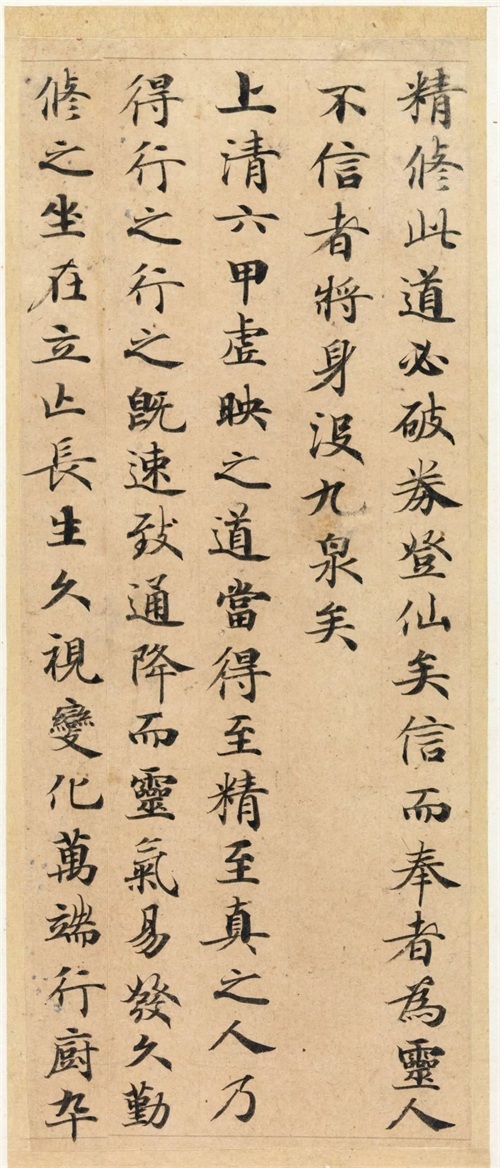 精修此道必破券登仙矣信而奉者為靈人
不信者將身没九泉矣
上清六甲虛映之道當得至精至真之人乃
得行之行之既速致通降而靈氣易發久勤
修之坐在立亡長生久視變化萬端行廚卒